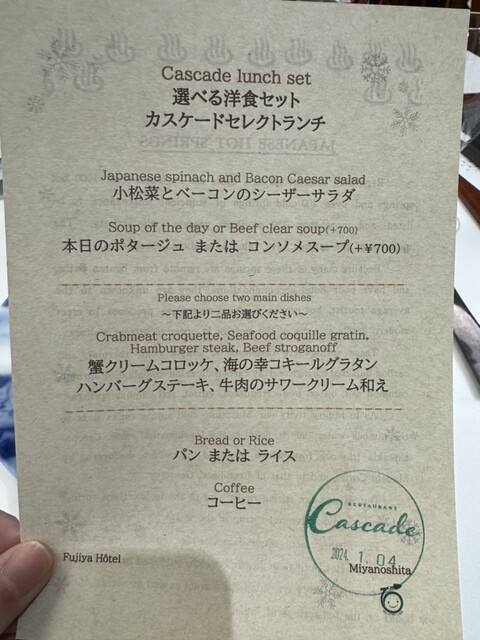 Cascade lunch set
選べる洋食セット
カスケードセレクトランチ
Japanese spinach and Bacon Caesar salad
小松菜とベーコンのシーザーサラダ
Soup of the day or Beef clear soup(+700)
本日のポタージュ または コンソメスープ(+¥700)
Please choose two main dishes
～下記より二品お選びください～
Crabmeat croquette, Seafood coquille gratin,
Hamburger steak, Beef stroganoff
蟹クリームコロッケ、海の幸コキールグラタン
ハンバーグステーキ、牛肉のサワークリーム和え
Bread or Rice
パン または ライス
Coffee
コーヒー
RESTAURANT
Cascade
2024. 1. 04
Fujiya Hôtel
Miyanoshita